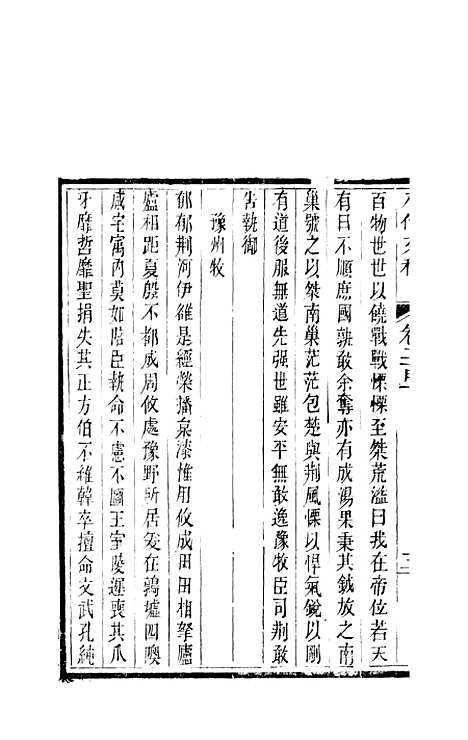 百物世世以饒戰戰慄慄至桀荒溢曰我在帝位若天
有日不順庶國孰敢余奪亦有成湯果秉其鉞放之南
巢號之以桀南巢茫茫包楚與荆風慓以悍氣銳以剛
有道後服無道先强世雖安平無敢逸豫牧臣司荆敢
告執御
豫州牧
郁郁荆河伊雒是經榮播枲漆惟用攸成田田相拏廬
廬相距夏殷不都成周攸處豫野所居爰在鶉墟四隩
咸宅寓內莫如陪臣執命不慮不圖王室陵遲喪其爪
牙靡哲靡聖捐失其正方伯不維韓卒擅命文武孔純